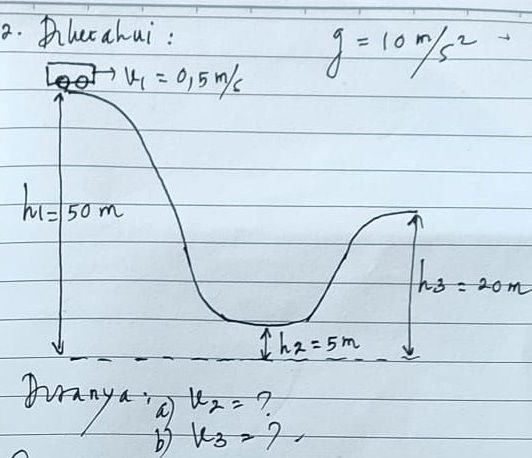 2. Diketahui :
g = 10 m/s²
v₁ = 0,5 m/s
h1 = 50 m
h3 = 20 m
h2 = 5m
Ditanya : a) v₂ = ?
b) v₃ = ?